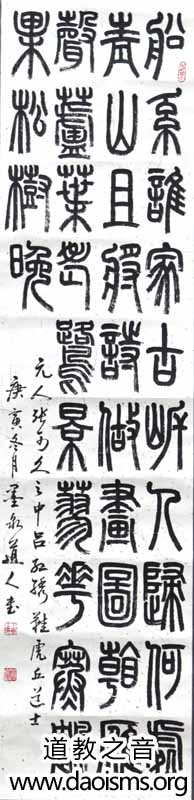 船系誰家古岸人歸何處
青山且將詩做畫圖看雁
聲蘆葉老鷺景蓼花寒鶴
巢松樹晚
元人張可久之中呂紅繡鞋虎丘道士
庚寅冬月墨道人書
道教之音
www.daoisms.org